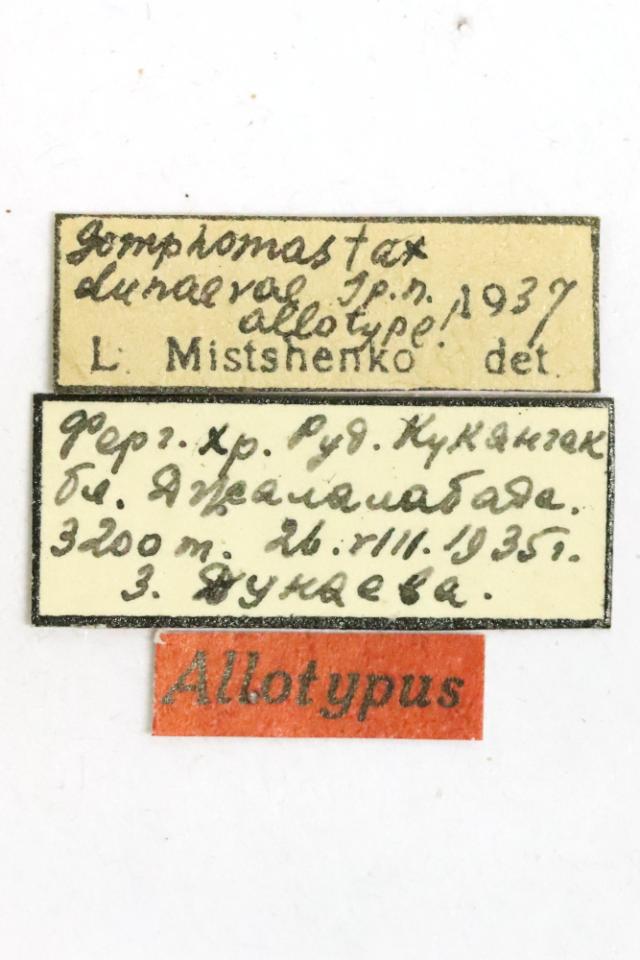 Gomphomastax
dunaevae sp. n.
allotype! 1937
L. Mistshenko det.
Ферг. хр. Руд. Кукангек
бл. Джалалабада.
3200 m. 26.VIII.1935г.
З. Дунаева.
Allotypus